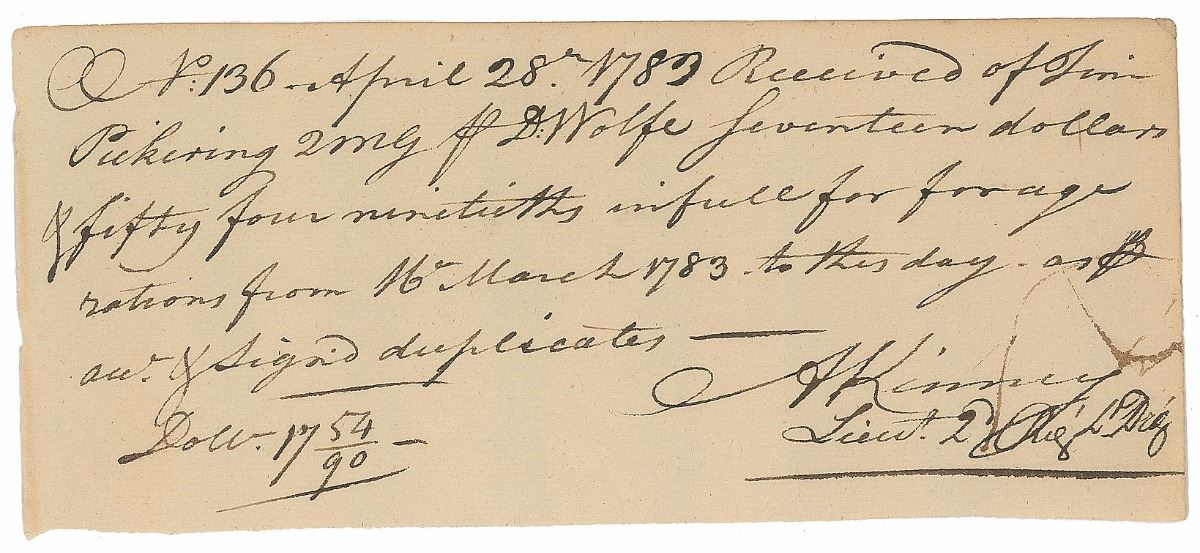 No. 136 - April 28th 1783 Received of Tim
Pickering 2MG ⅌ D: Wolfe Seventeen dollars
& fifty four ninetieths in full for forage
rations from 16th March 1783 - to this day - as ⅌
& Sign'd duplicates —
AKinney
Lieut. 2d Reg Lt Drgs
Dollrs. 17 54/90 —